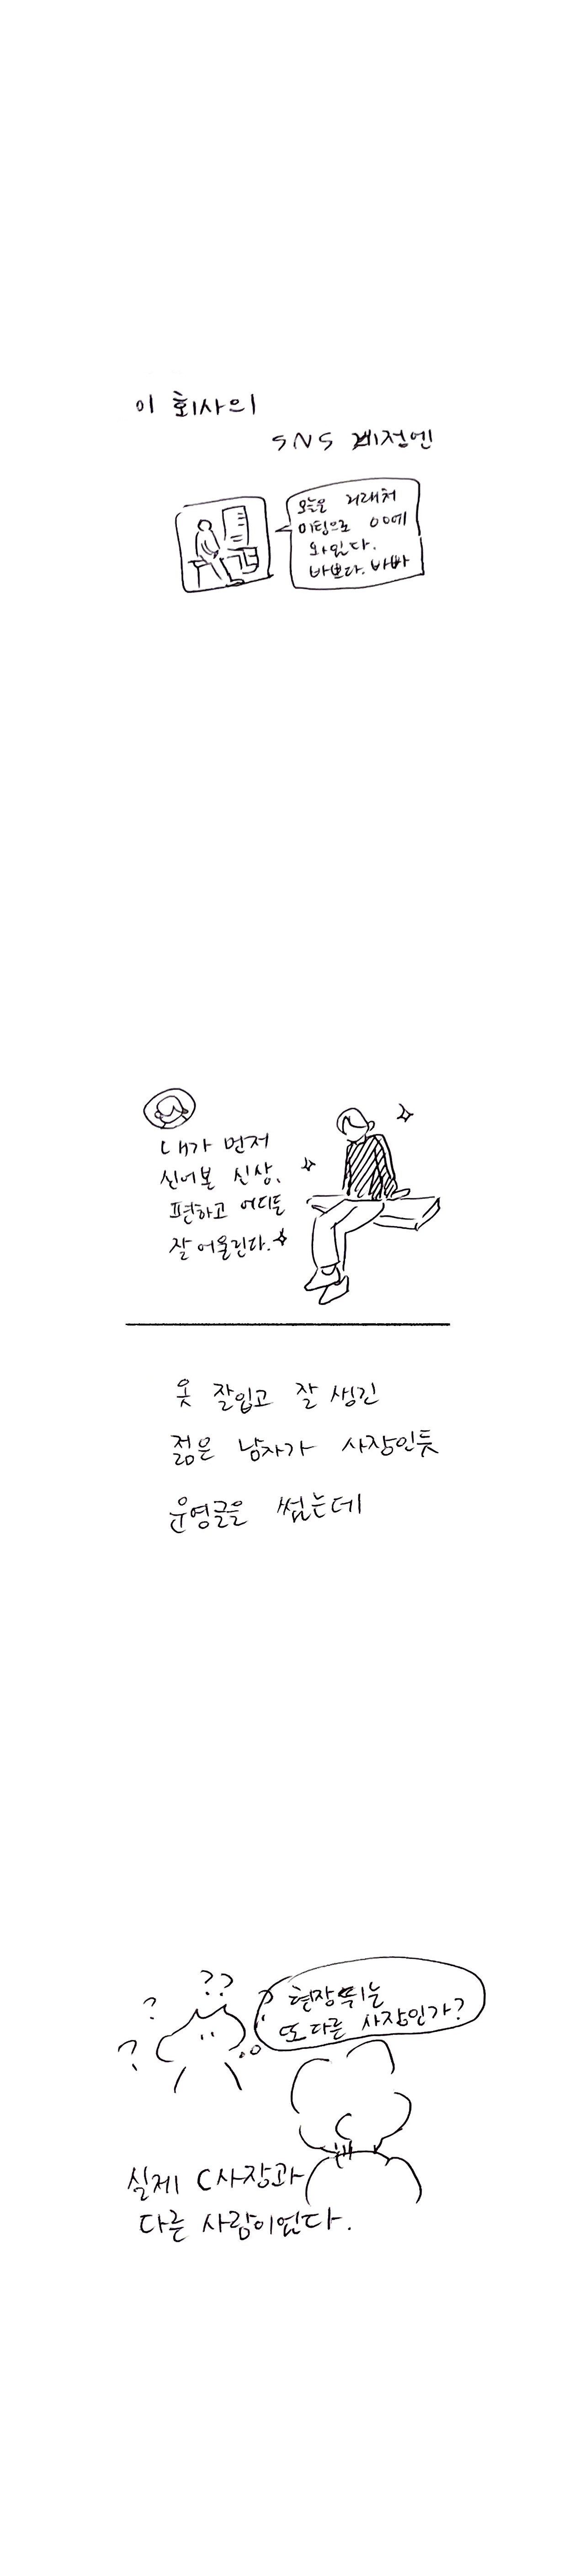 이 회사의
SNS 계정엔
오늘은 거래처
미팅으로 OO에
와있다.
바쁘다. 바빠
내가 먼저
신어본 신상,
편하고 어디든
잘 어울린다.
옷 잘입고 잘 생긴
젊은 남자가 사장인듯
운영글을 썼는데
??
?
?
?
현장 뛰는
또 다른 사장인가?
실제 C사장과
다른 사람이었다.